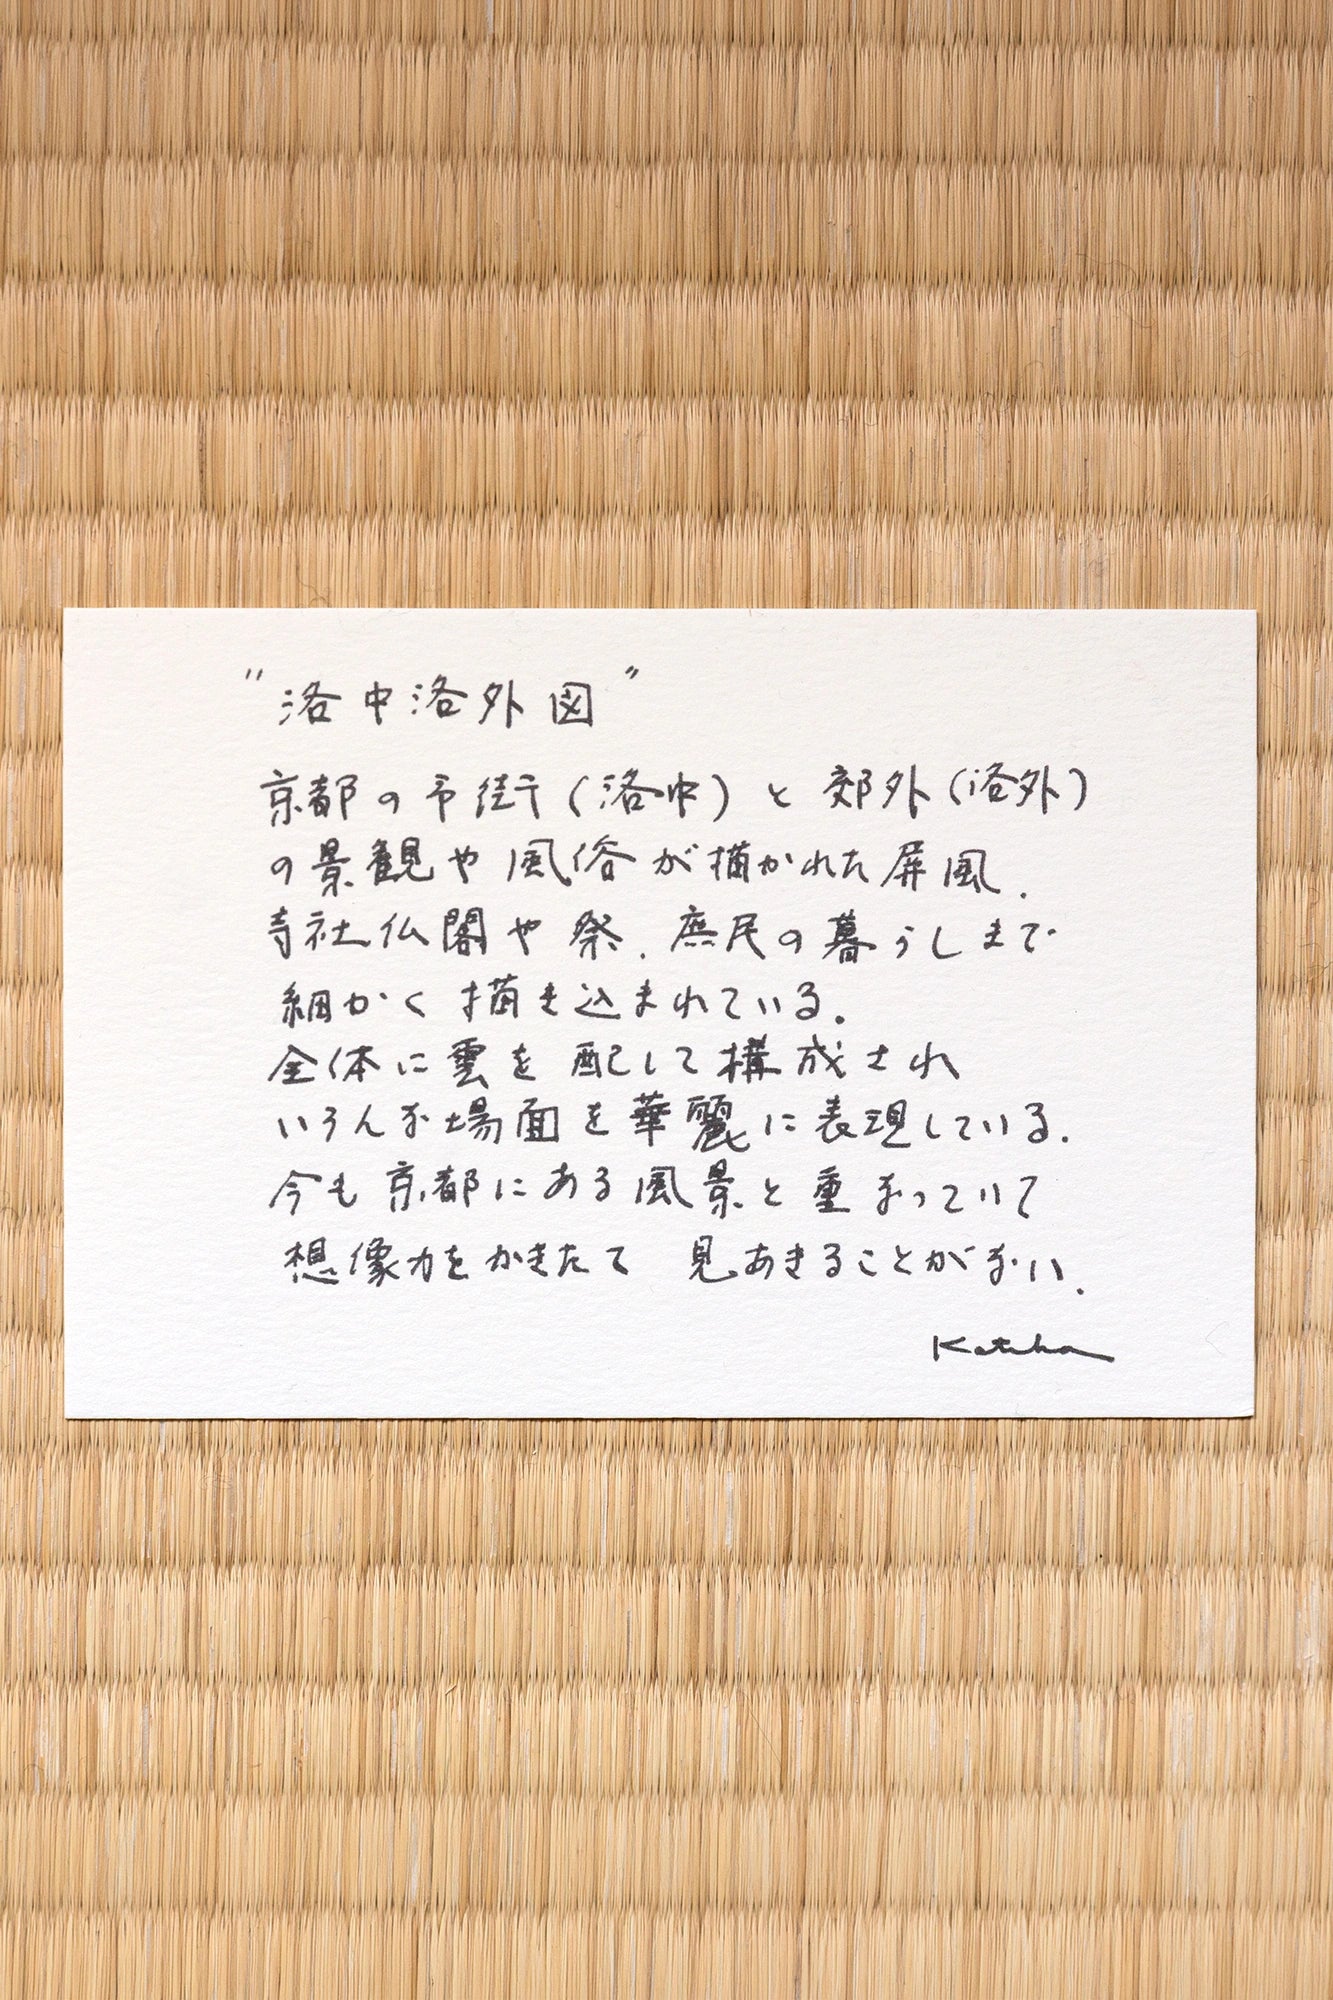 "洛中洛外図"
京都の市街(洛中)と郊外(洛外)
の景観や風俗が描かれた屏風.
寺社仏閣や祭.庶民の暮らしまで
細かく描き込まれている.
全体に雲を配して構成され
いろんな場面を華麗に表現している.
今も京都にある風景と重なっていて
想像力をかきたて 見あきることがない.